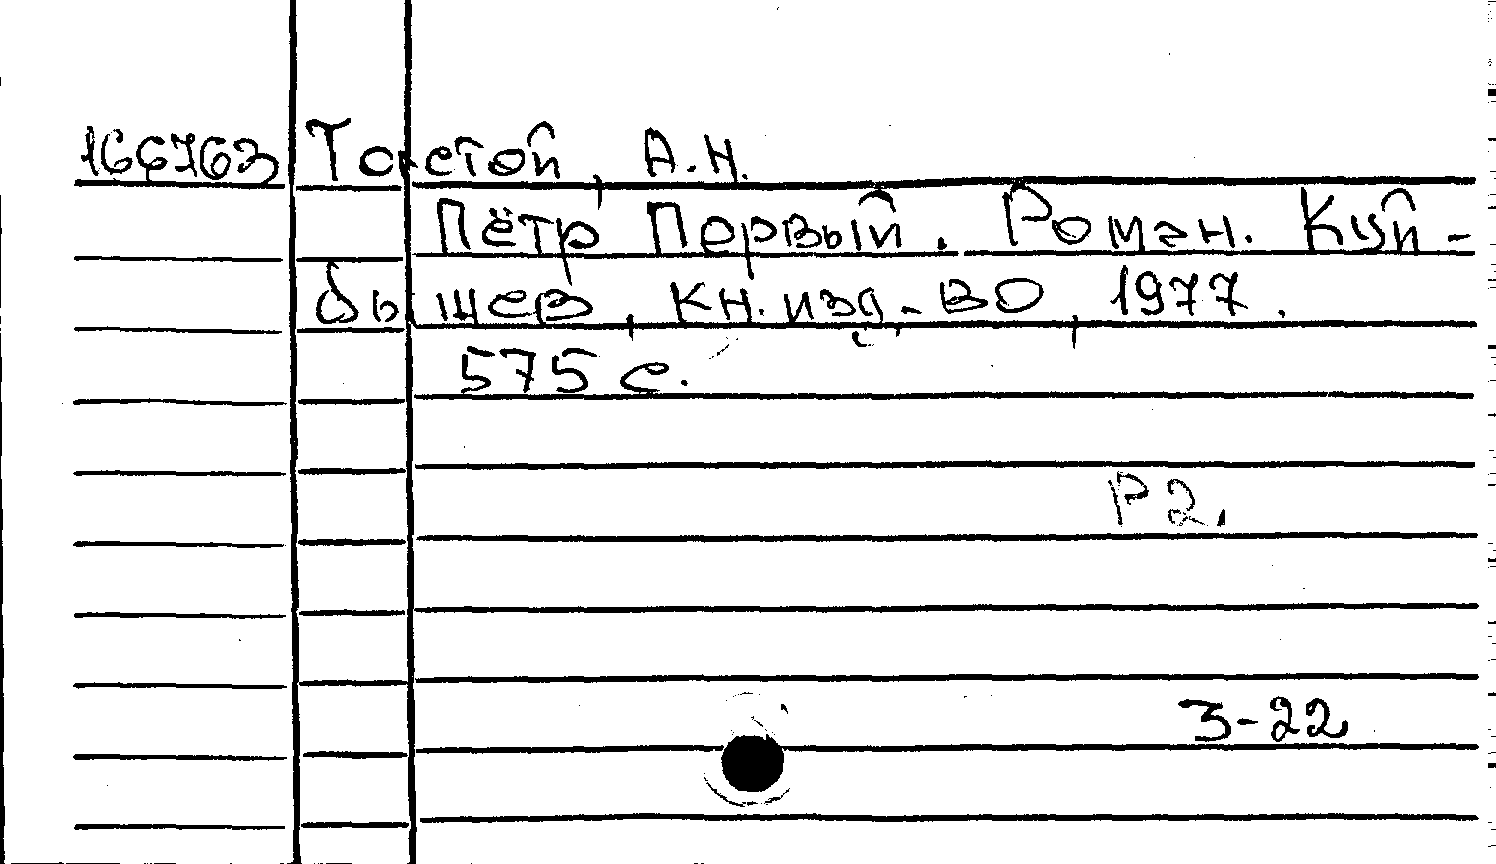 166763 Толстой, А.Н.
Пётр Первый. Роман. Куй-
бышев, кн. изд-во, 1977.
575 с.
Р2.
3-22